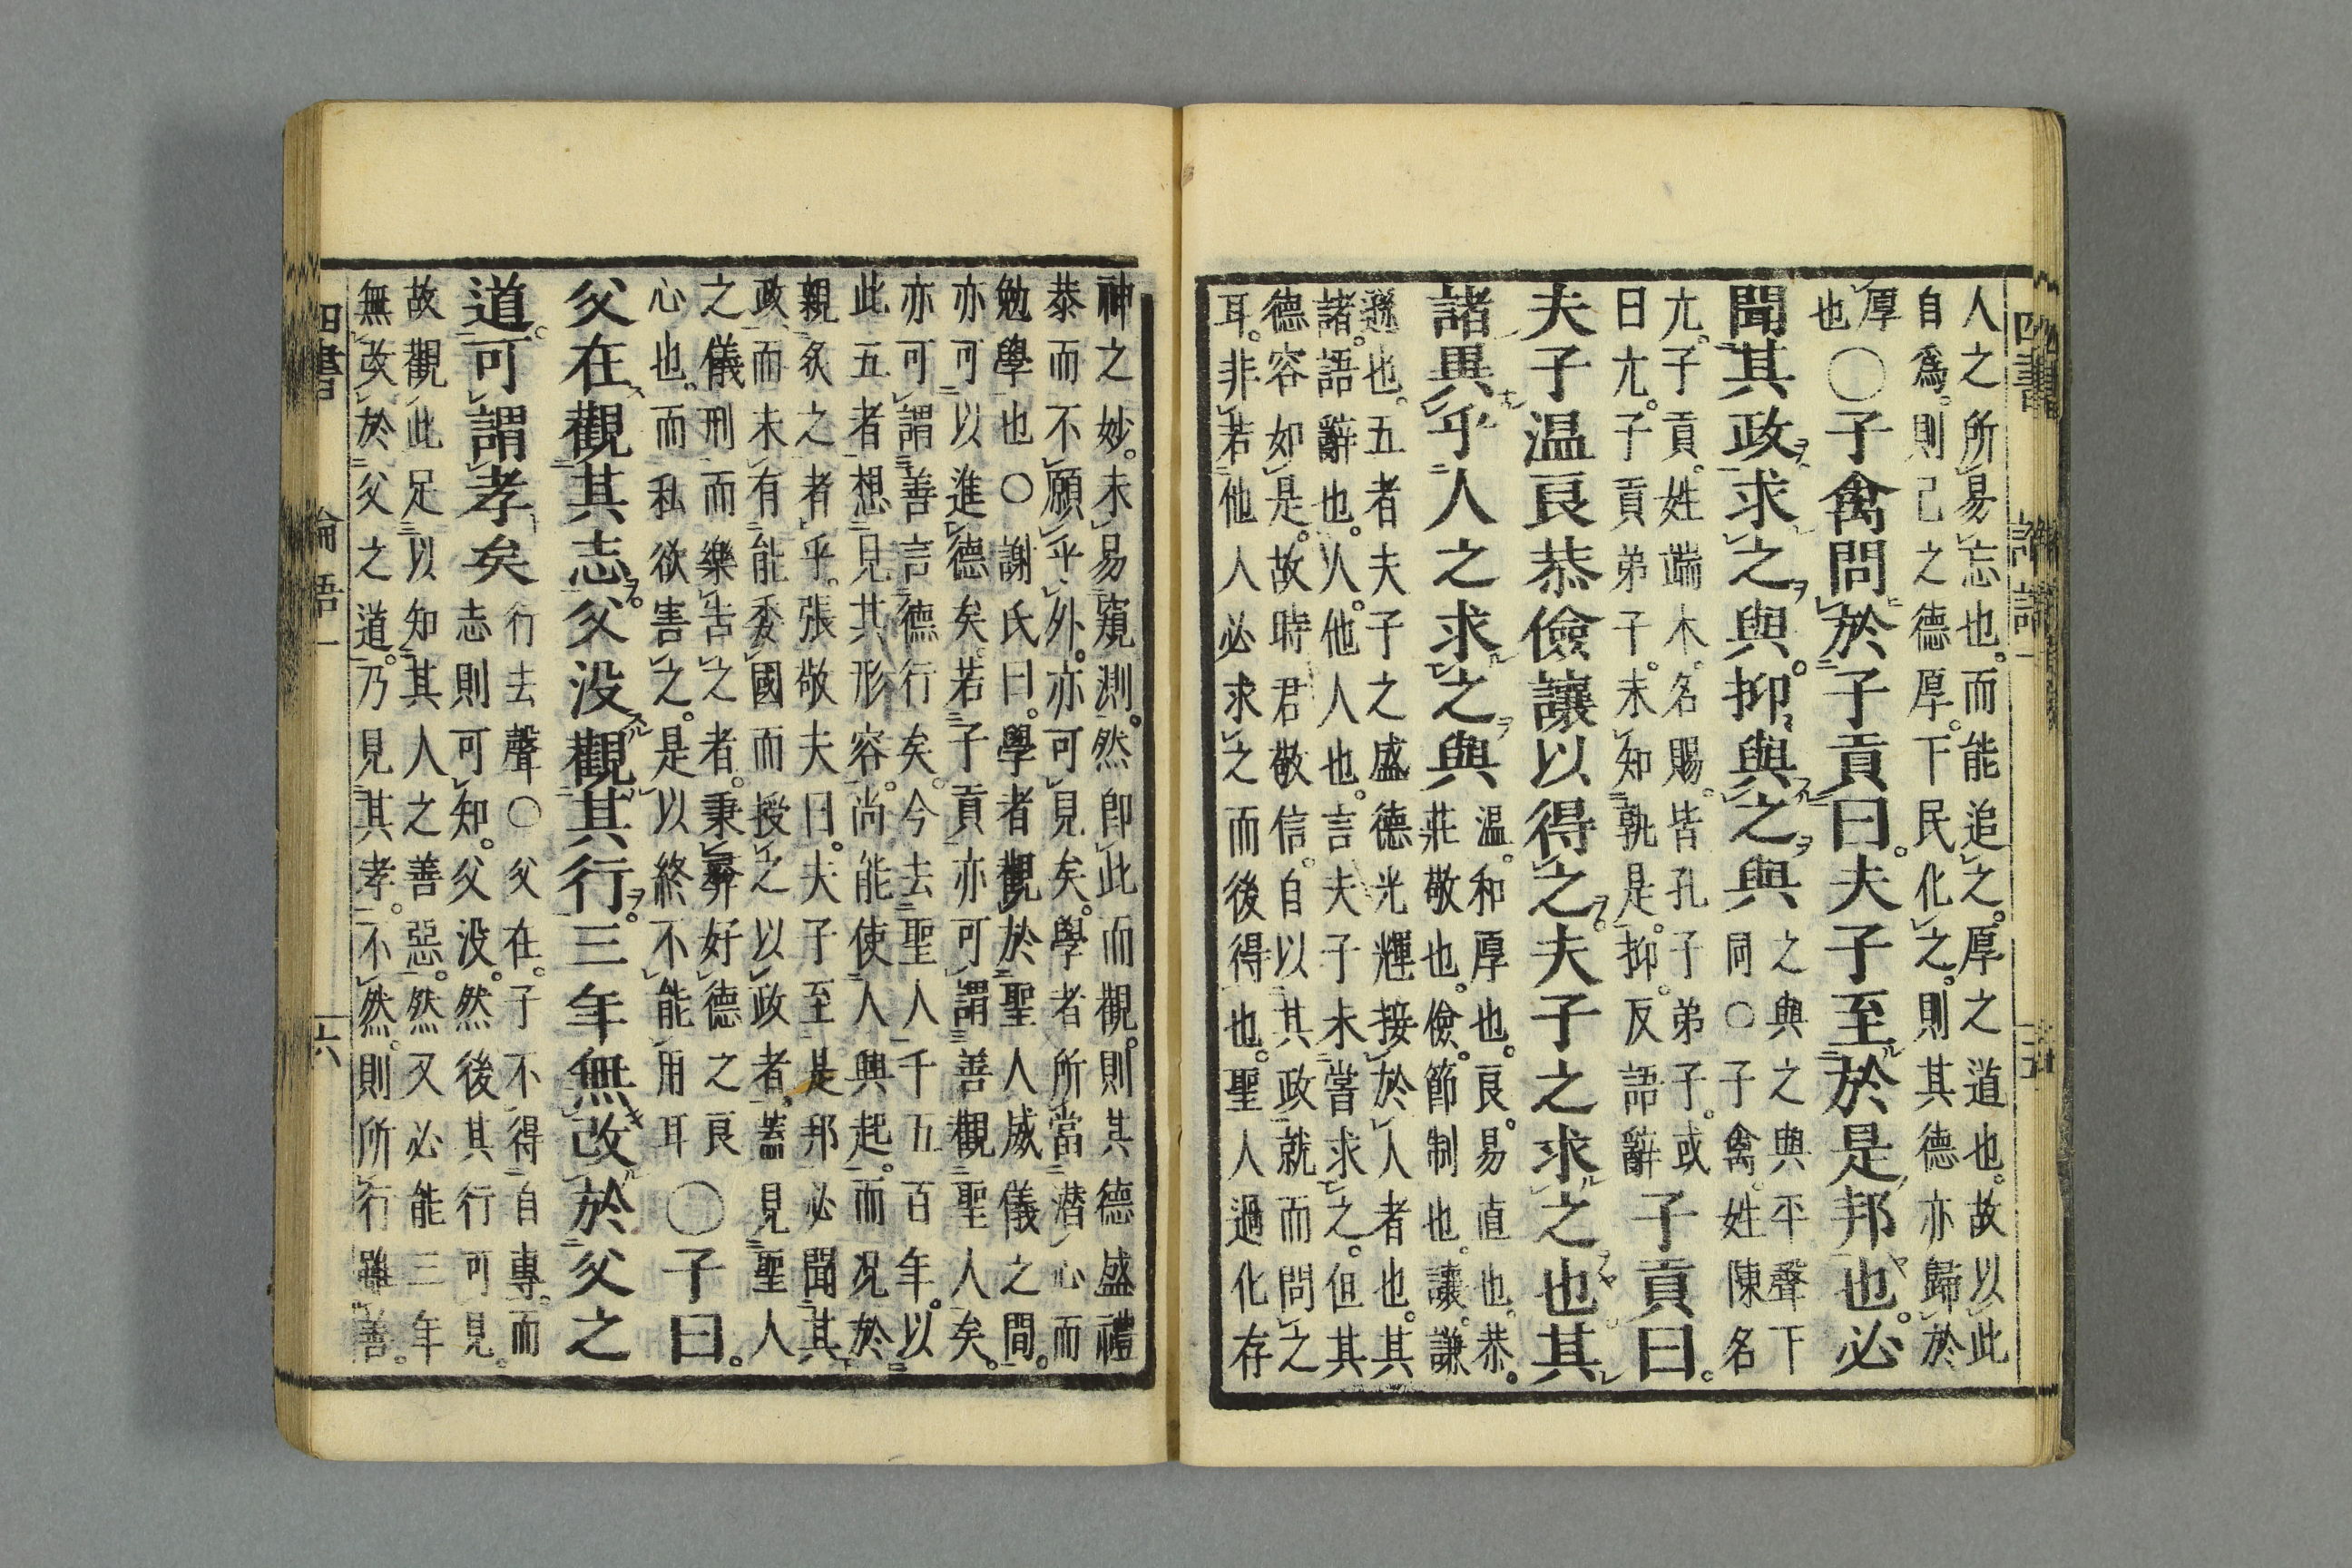 人之所易忘也。而能追之。厚之道也。故以此
自爲。則己之德厚。下民化之。則其德亦歸於
厚
也
〇子禽問於子貢曰。夫子至於是邦也。必
聞其政求之與。抑與之與
之與之與平聲下
同〇子禽。姓陳名
亢。子貢。姓端木。名賜。皆孔子弟子。或
曰亢。子貢弟子。未知孰是。抑。反語辭
子貢曰。
夫子温良恭儉讓以得之。夫子之求之也其
諸異乎人之求之與
温。和厚也。良。易直也。恭。
莊敬也。儉。節制也。讓。謙
遜也。五者夫子之盛德光輝接於人者也。其
諸。語辭也。人。他人也。言夫子未嘗求之。但其
德容如是。故時君敬信。自以其政就而問之
耳。非若他人必求之而後得也。聖人過化存
神之妙。未易窺測。然即此而觀。則其德盛禮
恭而不願乎外。亦可見矣。學者所當潛心而
勉學也〇謝氏曰。學者觀於聖人威儀之間。
亦可以進德矣。若子貢亦可謂善觀聖人矣。
亦可謂善言德行矣。今去聖人千五百年。以
此五者想見其形容。尚能使人興起。而況於
親炙之者乎。張敬夫曰。夫子至是邦必聞其
政而未有能委國而授之以政者。蓋見聖人
之儀刑而樂告之者。秉彝好德之良
心也。而私欲害之。是以終不能用耳
〇子曰。
父在觀其志。父没觀其行。三年無改於父之
道。可謂孝矣
行去聲〇父在。子不得自專。而
志則可知。父没。然後其行可見。
故觀此足以知其人之善惡。然又必能三年
無改於父之道。乃見其孝。不然。則所行雖善。
論語一
六